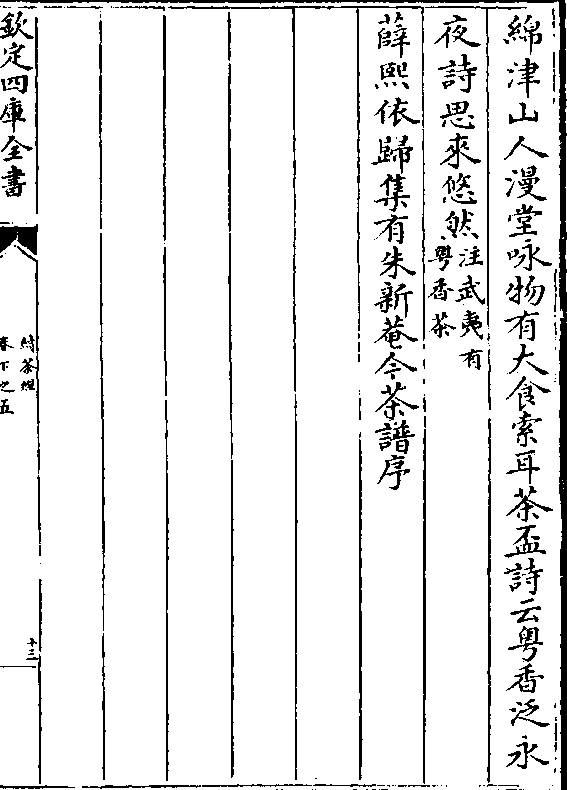 綿津山人漫堂咏物有大食索耳茶盃詩云粤香泛永
夜詩思來悠然注武夷有粤香茶
薛熙依歸集有朱新菴今茶譜序
欽定四庫全書
續茶經
卷下之五
十三